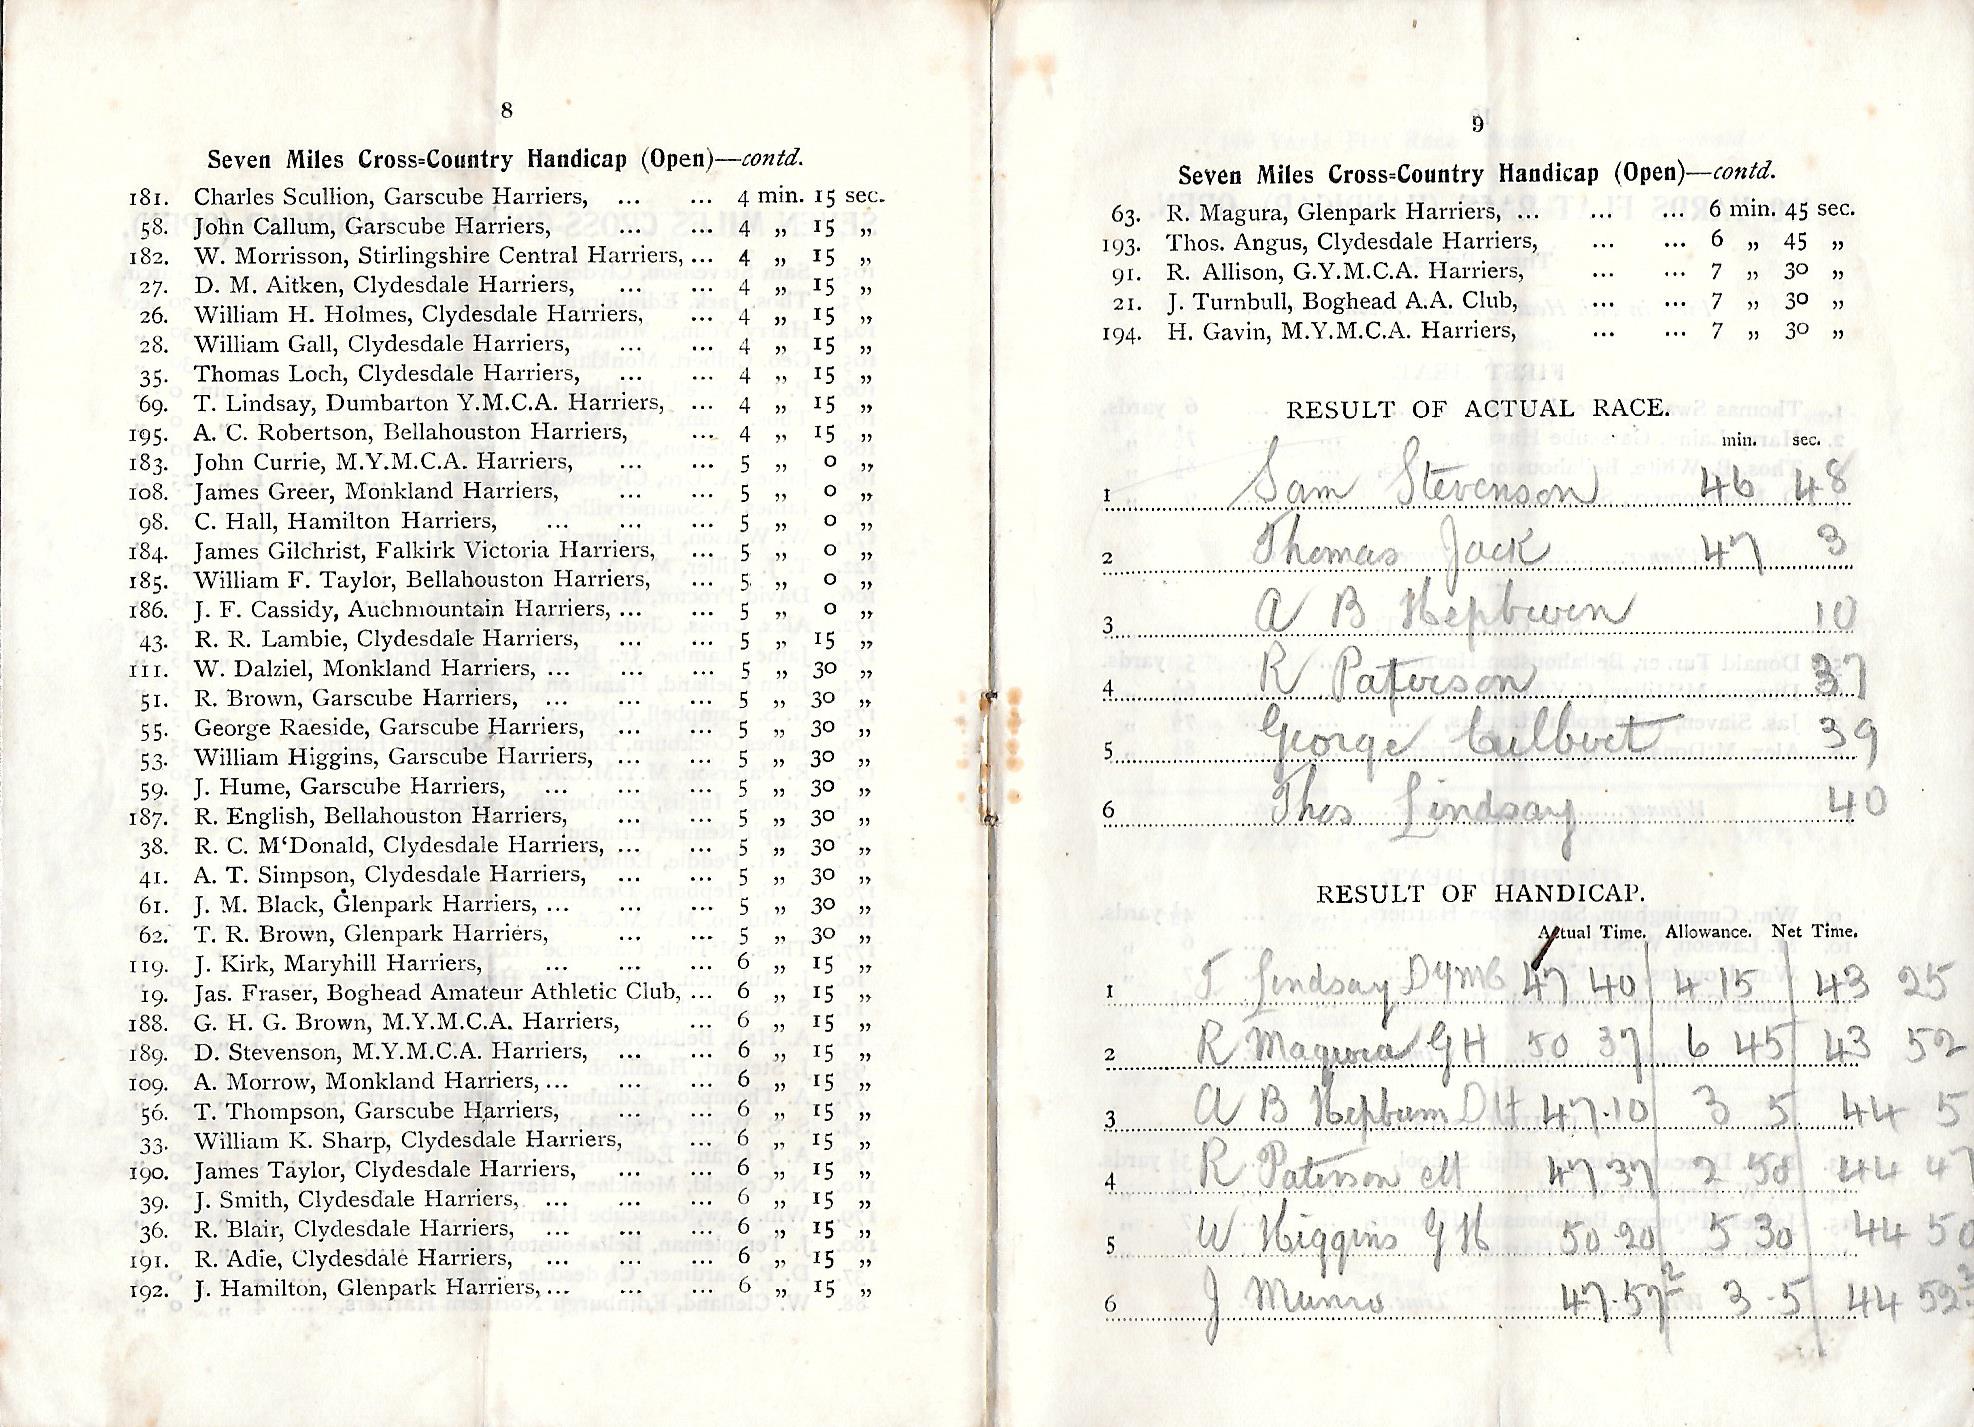 8
Seven Miles Cross-Country Handicap (Open)—contd.
181. Charles Scullion, Garscube Harriers, ... ... 4 min. 15 sec.
58. John Callum, Garscube Harriers, ... ... 4 „ 15 „
182. W. Morrisson, Stirlingshire Central Harriers, ... 4 „ 15 „
27. D. M. Aitken, Clydesdale Harriers, ... ... 4 „ 15 „
26. William H. Holmes, Clydesdale Harriers, ... 4 „ 15 „
28. William Gall, Clydesdale Harriers, ... ... 4 „ 15 „
35. Thomas Loch, Clydesdale Harriers, ... ... 4 „ 15 „
69. T. Lindsay, Dumbarton Y.M.C.A. Harriers, ... 4 „ 15 „
195. A. C. Robertson, Bellahouston Harriers, ... 4 „ 15 „
183. John Currie, M.Y.M.C.A. Harriers, ... ... 5 „ 0 „
108. James Greer, Monkland Harriers, ... ... 5 „ 0 „
98. C. Hall, Hamilton Harriers, ... ... ... 5 „ 0 „
184. James Gilchrist, Falkirk Victoria Harriers, ... 5 „ 0 „
185. William F. Taylor, Bellahouston Harriers, ... 5 „ 0 „
186. J. F. Cassidy, Auchmountain Harriers, ... ... 5 „ 0 „
43. R. R. Lambie, Clydesdale Harriers, ... ... 5 „ 15 „
111. W. Dalziel, Monkland Harriers, ... ... ... 5 „ 30 „
51. R. Brown, Garscube Harriers, ... ... ... 5 „ 30 „
55. George Raeside, Garscube Harriers, ... ... 5 „ 30 „
53. William Higgins, Garscube Harriers, ... ... 5 „ 30 „
59. J. Hume, Garscube Harriers, ... ... ... 5 „ 30 „
187. R. English, Bellahouston Harriers, ... ... 5 „ 30 „
38. R. C. M‘Donald, Clydesdale Harriers, ... ... 5 „ 30 „
41. A. T. Simpson, Clydesdale Harriers, ... ... 5 „ 30 „
61. J. M. Black, Glenpark Harriers, ... ... ... 5 „ 30 „
62. T. R. Brown, Glenpark Harriers, ... ... 5 „ 30 „
119. J. Kirk, Maryhill Harriers, ... ... ... 6 „ 15 „
19. Jas. Fraser, Boghead Amateur Athletic Club, ... 6 „ 15 „
188. G. H. G. Brown, M.Y.M.C.A. Harriers, ... 6 „ 15 „
189. D. Stevenson, M.Y.M.C.A. Harriers, ... ... 6 „ 15 „
109. A. Morrow, Monkland Harriers, ... ... ... 6 „ 15 „
56. T. Thompson, Garscube Harriers, ... ... 6 „ 15 „
33. William K. Sharp, Clydesdale Harriers, ... 6 „ 15 „
190. James Taylor, Clydesdale Harriers, ... ... 6 „ 15 „
39. J. Smith, Clydesdale Harriers, ... ... ... 6 „ 15 „
36. R. Blair, Clydesdale Harriers, ... ... ... 6 „ 15 „
191. R. Adie, Clydesdale Harriers, ... ... ... 6 „ 15 „
192. J. Hamilton, Glenpark Harriers, ... ... ... 6 „ 15 „
9
Seven Miles Cross-Country Handicap (Open)—contd.
63. R. Magura, Glenpark Harriers, ... ... ... 6 min. 45 sec.
193. Thos. Angus, Clydesdale Harriers, ... ... 6 „ 45 „
91. R. Allison, G.Y.M.C.A. Harriers, ... ... 7 „ 30 „
21. J. Turnbull, Boghead A.A. Club, ... ... 7 „ 30 „
194. H. Gavin, M.Y.M.C.A. Harriers, ... ... 7 „ 30 „
RESULT OF ACTUAL RACE.
min. sec.
1 Sam Stevenson 46 48
2 Thomas Jack 47 3
3 A B Hepburn 10
4 R Paterson 37
5 George Culbert 39
6 Thos Lindsay 40
RESULT OF HANDICAP.
Actual Time. Allowance. Net Time.
1 T Lindsay DYMC 47 40 4 15 43 25
2 R Magura GH 50 37 6 45 43 52
3 A B Hepburn DH 47.10 3 5 44 5
4 R Paterson M 47.37 2 50 44 47
5 W Higgins GH 50 20 5 30 44 50
6 J Munro 47.57 2 3.5 44 52